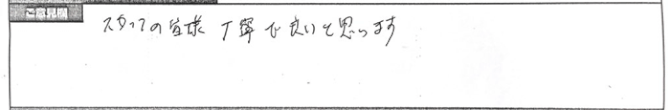 ご意見欄
スタッフの皆様 丁寧で良いと思います